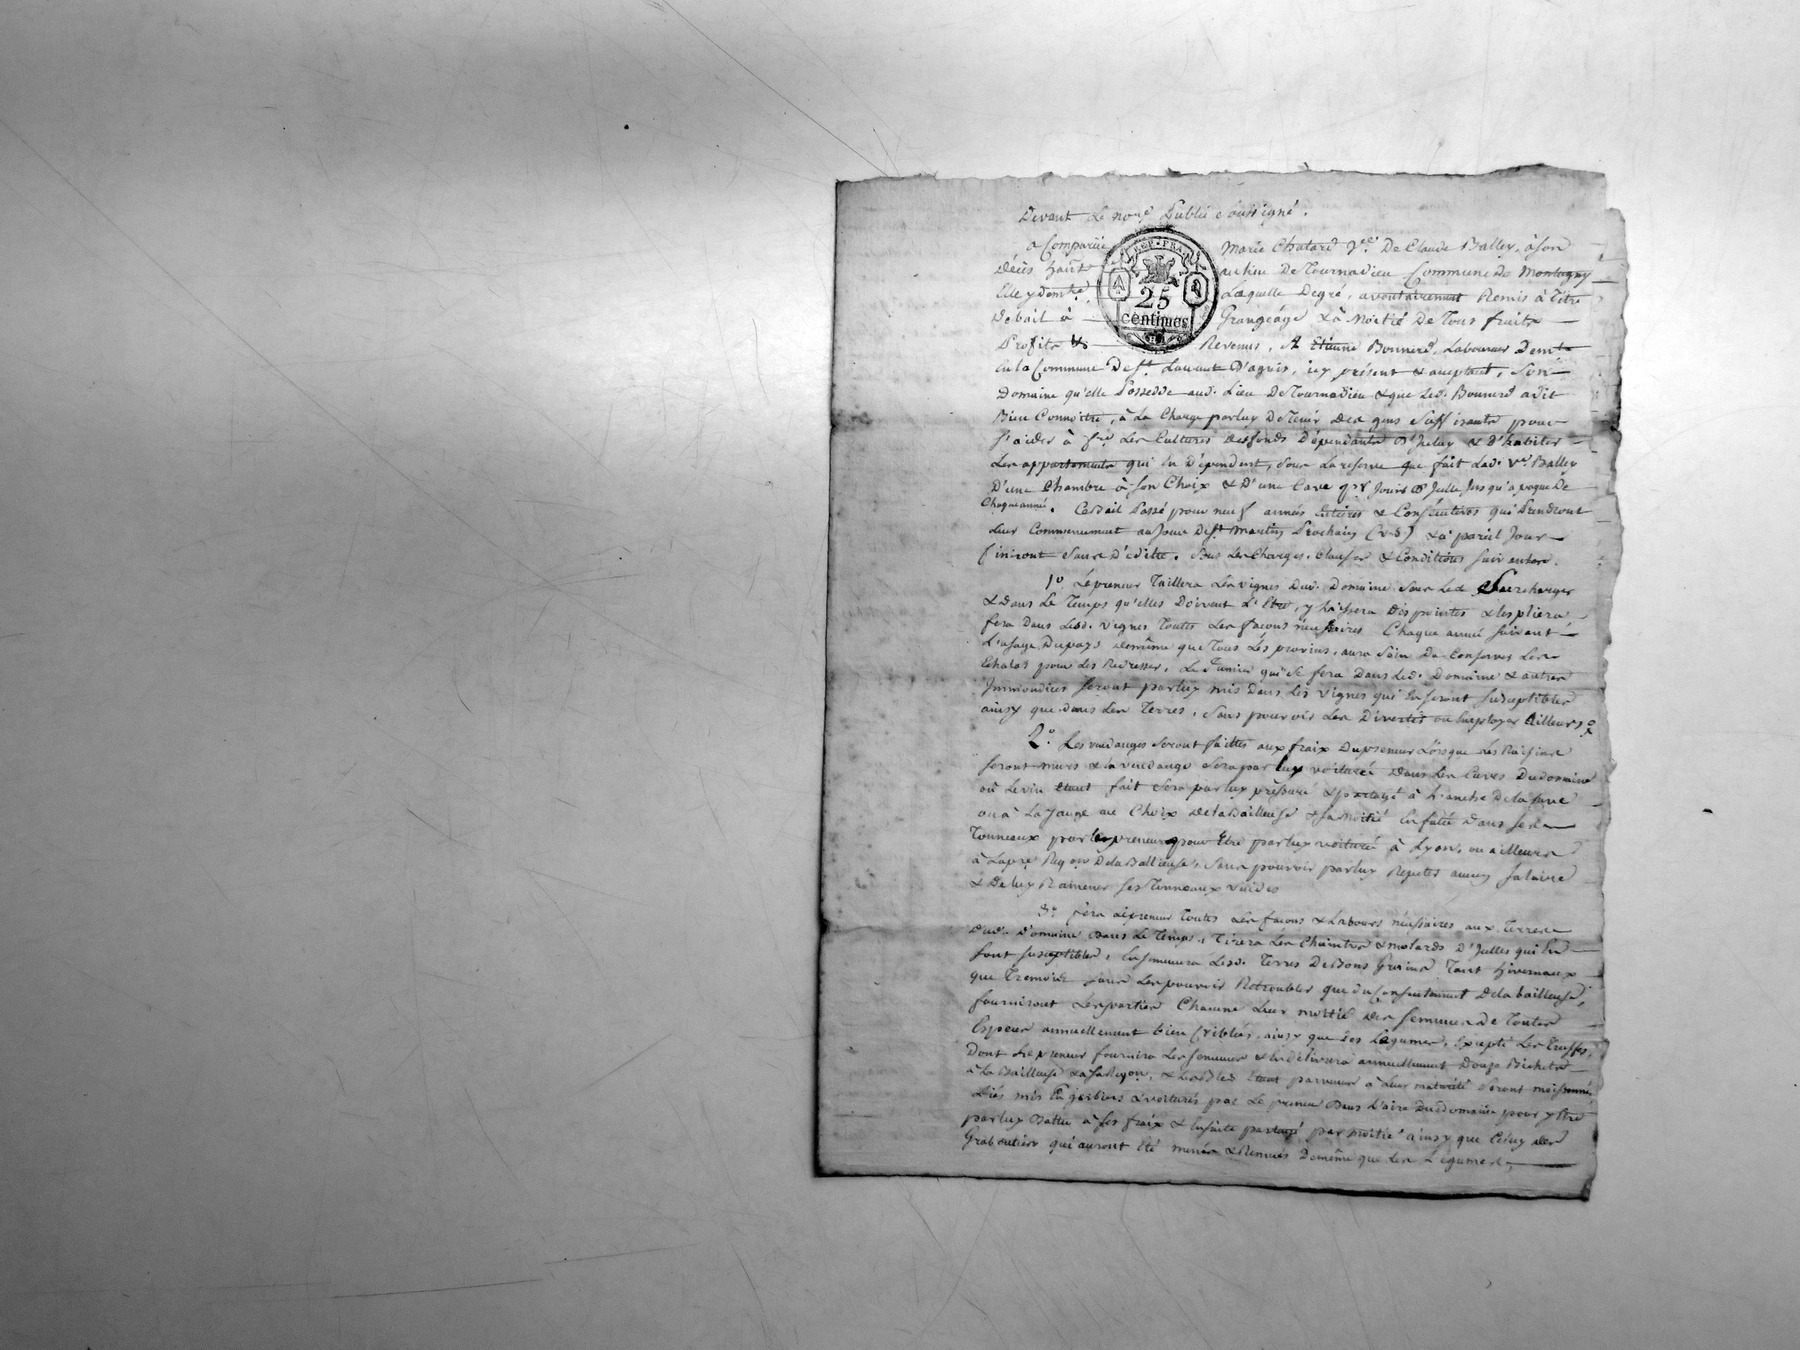 Devant Le not.e Public soussigné.
a Comparüe Marie Chatard V.e De Claude Balley, à son
Décès hant au lieu De Tournadieu Commune de Montagny
Elle y dem.te, Laquelle Degré, a volontairement Remis à titre
De bail à Grangéage & à Moitié De Tous fruits
Profits & Revenus, A Etienne Bonnerd, Laboureur Dem.t
En la Commune De S.t Laurent D'agnis, icy présent & acceptant, Son
Domaine qu'elle Possedde aud. Lieu De Tournadieu & que Led. Bonnerd a dit
Bien Connoitre, à La Charge par luy De Tenir Des gens Suffisants pour
s'aider à f.re Les Cultures des fonds Dépendants D'Iceluy & D'habiter
Les appartements qui En Dépendent, Sous La reserve que fait Lad. V.e Balley
D'une Chambre à Son Choix & D'une Cave Jusqu'a De
Chaque année. Ce Bail Passé pour neuf années Entieres & Consécutives qui Prendront
Leur Commencement au Jour De S.t Martin Prochain (v.s) & à pareil Jour
finiront Sans D'edite. Sous Les Charges, Clauses & Conditions Suivantes.
1.o Le preneur Taillera Les vignes Dud. Domaine Sans Les Surcharger
& Dans Le Temps qu'elles Doivent L'Etre, y laissera Des pointes & les pliera
fera Dans Lesd. vignes Toutes Les façons nécessaires Chaque année Suivant
L'usage Du pays de même que Tous Les provins, aura Soin De Conserver Les
Echalas pour Les Redresser. Le fumier qui Se fera Dans Led. Domaine & autres
Immondices Seront par luy mis Dans Les vignes qui En Seront Susceptibles
ainsy que dans Les Terres, Sans pouvoir Les Divertir ou Employer Ailleurs
2.o Les vendanges Seront faittes aux fraix Du preneur Lorsque Les Raisins
Seront murs & la vendange Sera par luy voiturée Dans Les Cuves Du domaine
où Le vin Etant fait Sera par luy pressuré & partagé à L'anche De la Cuve
ou à La Jauge au Choix De la Bailleuse & Sa Moitié En futée Dans Ses
Tonneaux par le preneur pour Etre par luy voiturée à Lyon, ou ailleurs
à De la Bailleuse, Sans pouvoir par luy Repeter aucun Salaire
& De luy Ramener Ses Tonneaux vuides
3.o fera Le preneur Toutes Les façons & Labours nécessaires aux Terres
Dud. Domaine Dans Le Temps, Tirera Les Chaintres & molards D'Icelles qui En
Sont Susceptibles, Ensemencera Lesd. Terres De Bons Grains Tant hivernaux
que Tremois Sans Les pouvoir Retroubler que du Consentement De la bailleuse,
fourniront Les parties Chacune Leur moitié Des Semences De Toutes
Especes annuellement bien Criblées, ainsy que Des Légumes, Excepté Les Truffes,
Dont Le preneur fournira Les Semences & En délivrera annuellement Douze Bichets
à La Bailleuse & Les Bleds Etant parvenus à Leur maturité Seront moissonnés
Liés mis En gerbiers & voiturés par Le preneur Dans L'aire Du Domaine pour y Etre
par luy Battu à Ses fraix & Ensuite partagé par moitié ainsy que Celuy Des
qui auront Eté menés & Remués De même que Les Légumes,
REP. FRA.
25
centimes